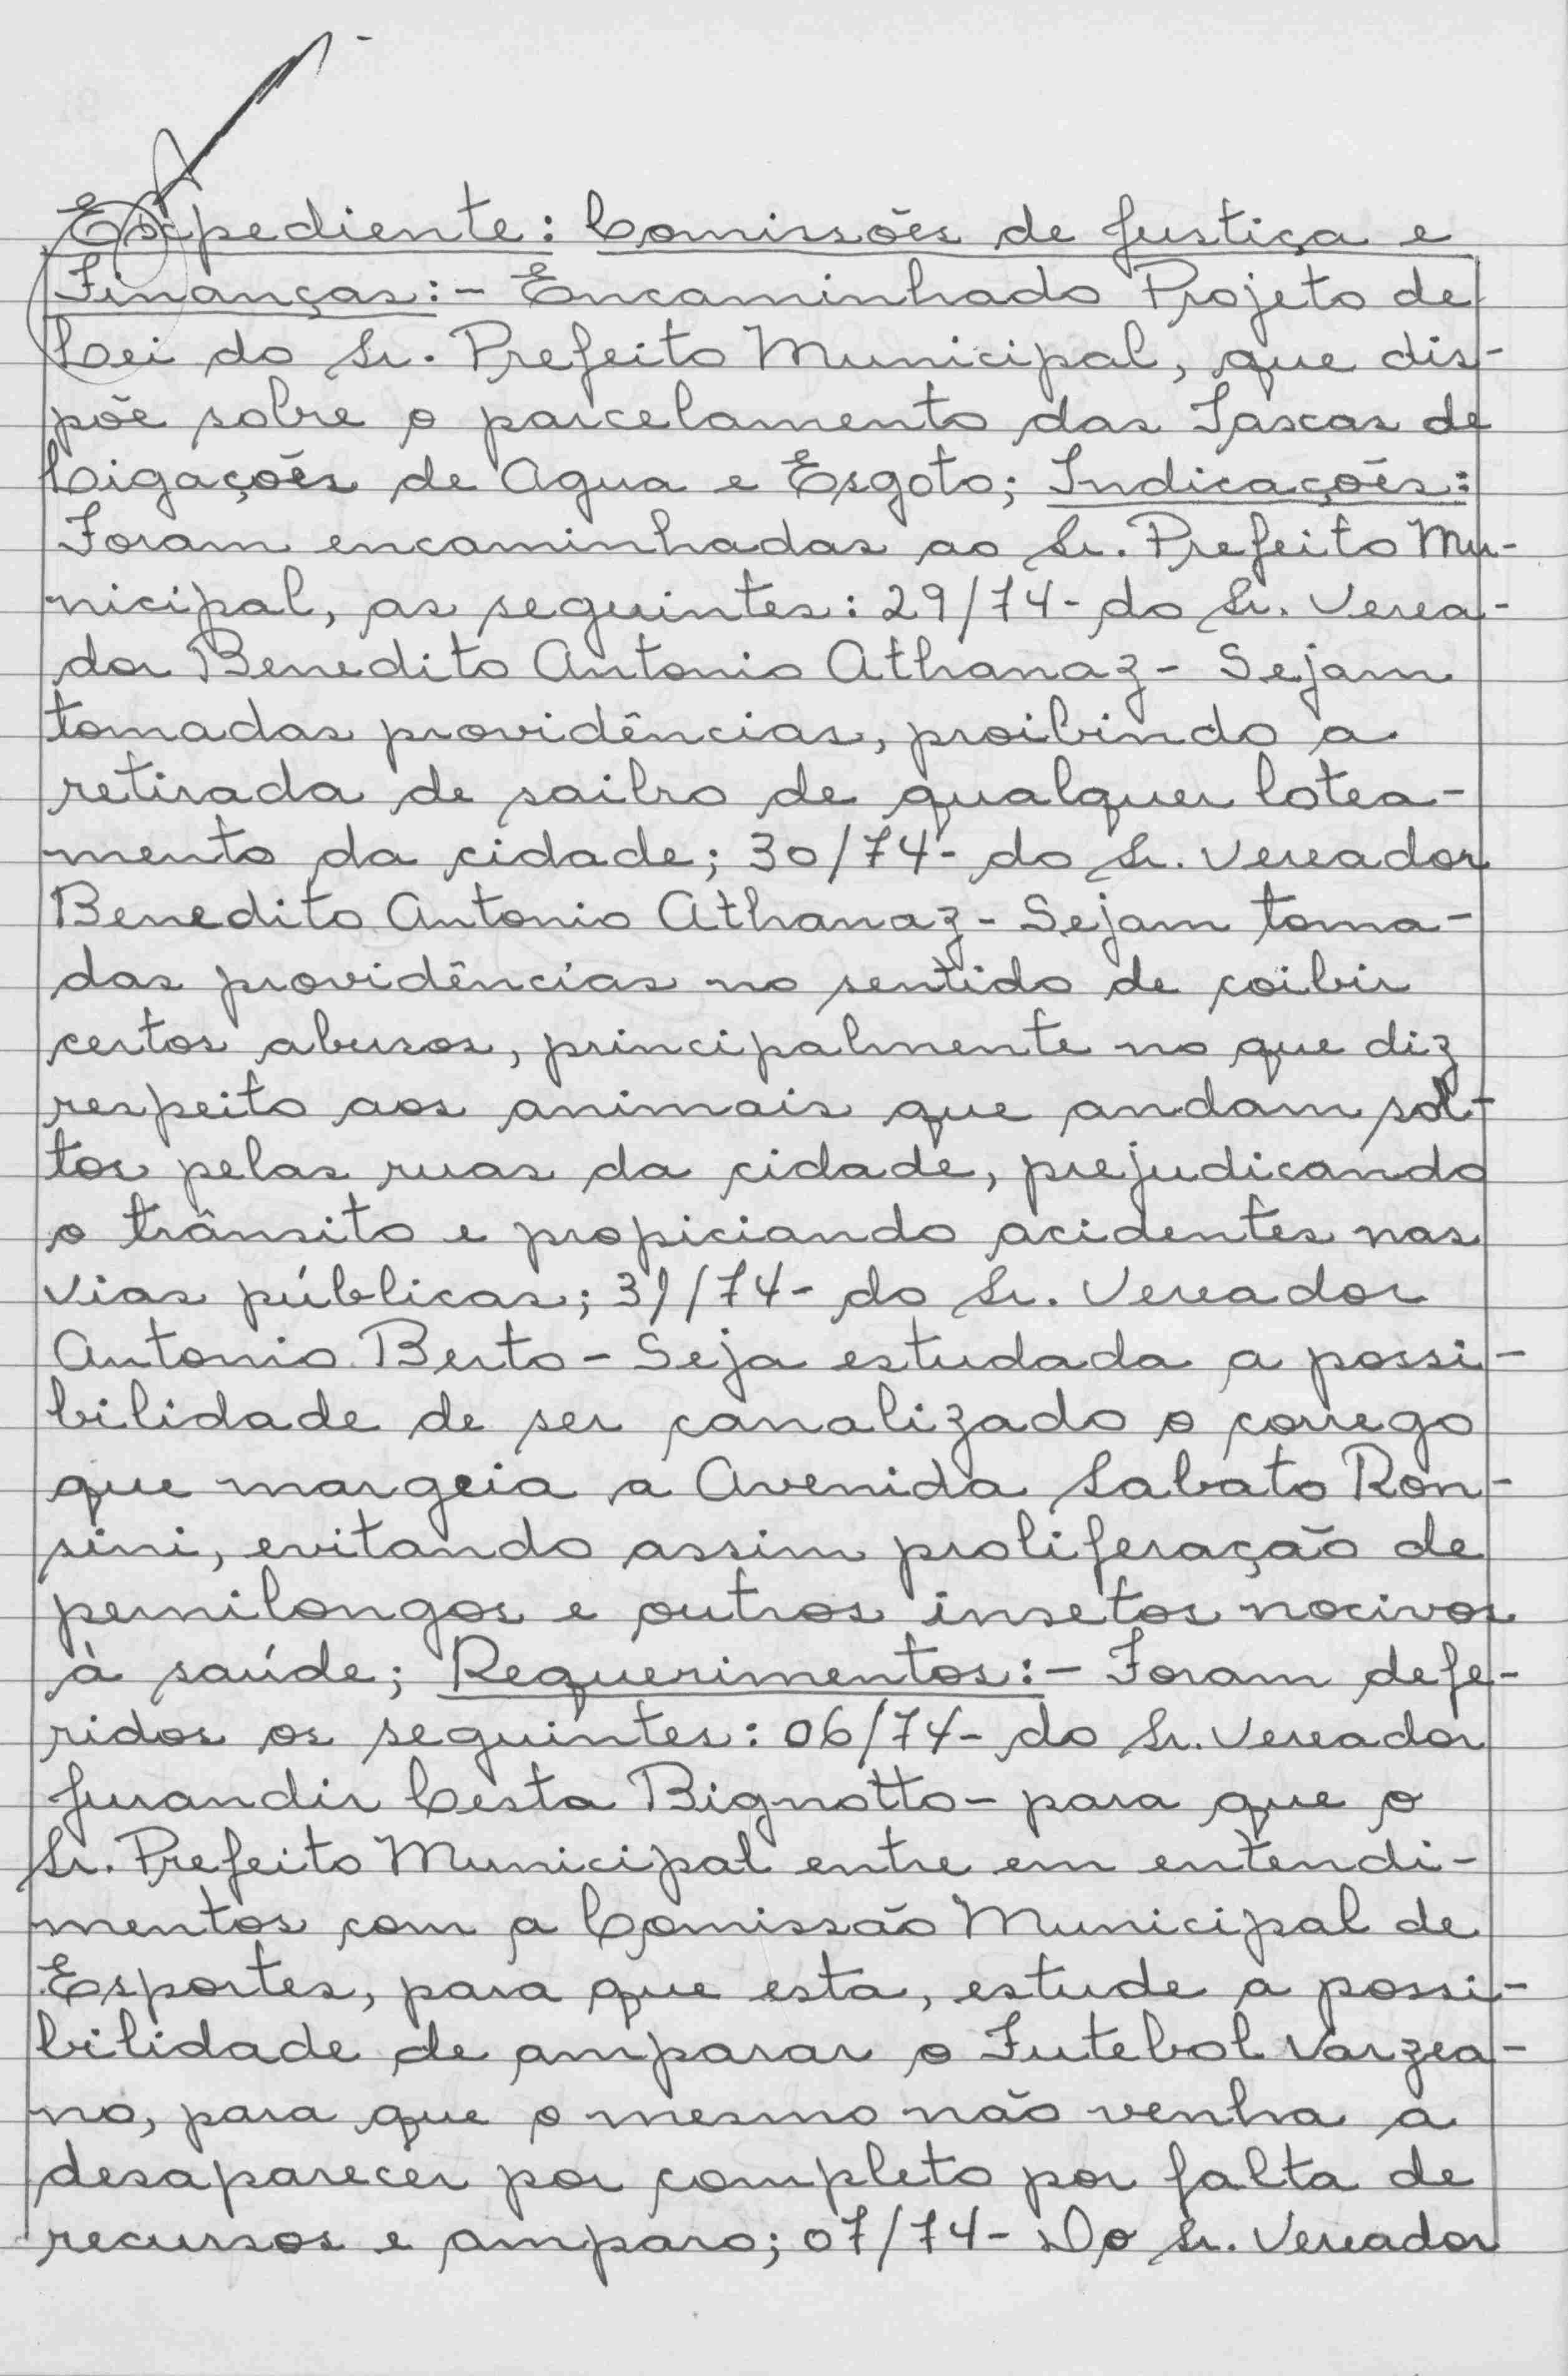 Expediente: Comissões de Justiça e
Finanças:- Encaminhado Projeto de
Lei do Sr. Prefeito Municipal, que dis-
põe sobre o parcelamento das Taxas de
Ligações de Agua e Esgoto; Indicações:
Foram encaminhadas ao Sr. Prefeito Mu-
nicipal, as seguintes: 29/74- do Sr. Verea-
dor Benedito Antonio Athanaz - Sejam
tomadas providências, proibindo a
retirada de saibro de qualquer lotea-
mento da cidade; 30/74- do Sr. Vereador
Benedito Antonio Athanaz - Sejam toma-
das providências no sentido de coibir
certos abusos, principalmente no que diz
respeito aos animais que andam sol-
tos pelas ruas da cidade, prejudicando
o trânsito e propiciando acidentes nas
vias públicas; 31/74- do Sr. Vereador
Antonio Berto - Seja estudada a possi-
bilidade de ser canalizado o corrego
que margeia a Avenida Sabato Ron-
sini, evitando assim proliferação de
pernilongos e outros insetos nocivos
à saúde; Requerimentos:- Foram defe-
ridos os seguintes: 06/74- do Sr. Vereador
Jurandir Cesta Bignotto - para que o
Sr. Prefeito Municipal entre em entendi-
mentos com a Comissão Municipal de
Esportes, para que esta, estude a possi-
bilidade de amparar o Futebol Varzea-
no, para que o mesmo não venha a
desaparecer por completo por falta de
recursos e amparo; 07/74- Do Sr. Vereador